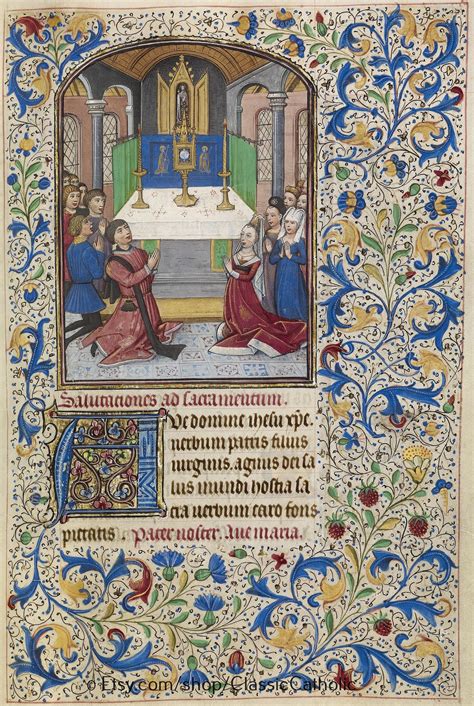 Salutationes ad sacramentum.
Aue domine ihesu xp̄e.
uerbum patris filius
uirginis. agnus dei sa
lus mundi hostia sa
cra uerbum caro fons
pietatis Pater noster. Aue maria.
© Etsy.com/shop/ClassicCatholic